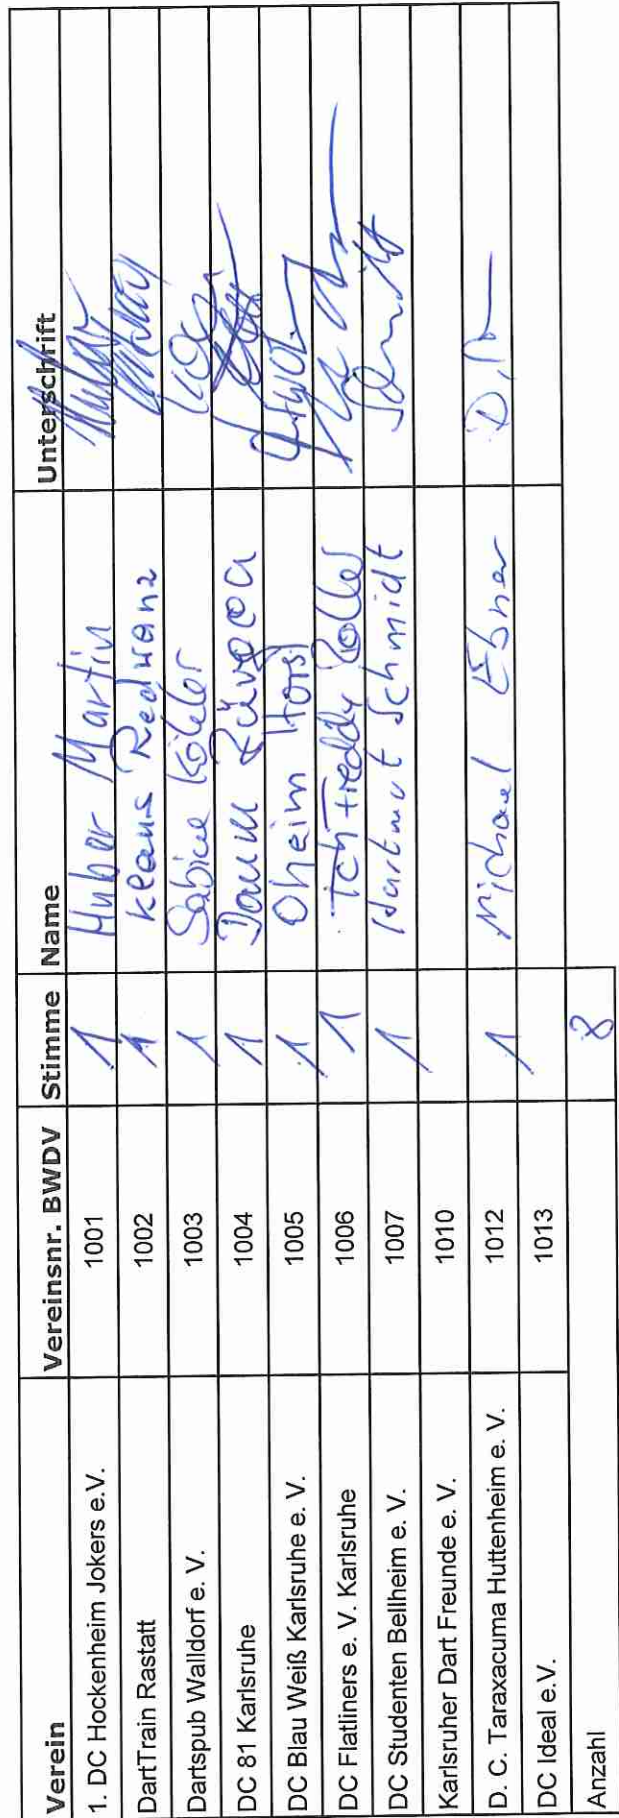 Verein Vereinsnr. BWDV Stimme Name Unterschrift
1. DC Hockenheim Jokers e.V. 1001 1 Huber Martin
DartTrain Rastatt 1002 1 Klaus Redwanz
Dartspub Walldorf e. V. 1003 1 Sabine Köhler
DC 81 Karlsruhe 1004 1
DC Blau Weiß Karlsruhe e. V. 1005 1 Oheim Horst
DC Flatliners e. V. Karlsruhe 1006 1 Freddy
DC Studenten Bellheim e. V. 1007 1 Hartmut Schmidt Schmidt
Karlsruher Dart Freunde e. V. 1010
D. C. Taraxacuma Huttenheim e. V. 1012 1 Michael Ebner
DC Ideal e.V. 1013
Anzahl 8